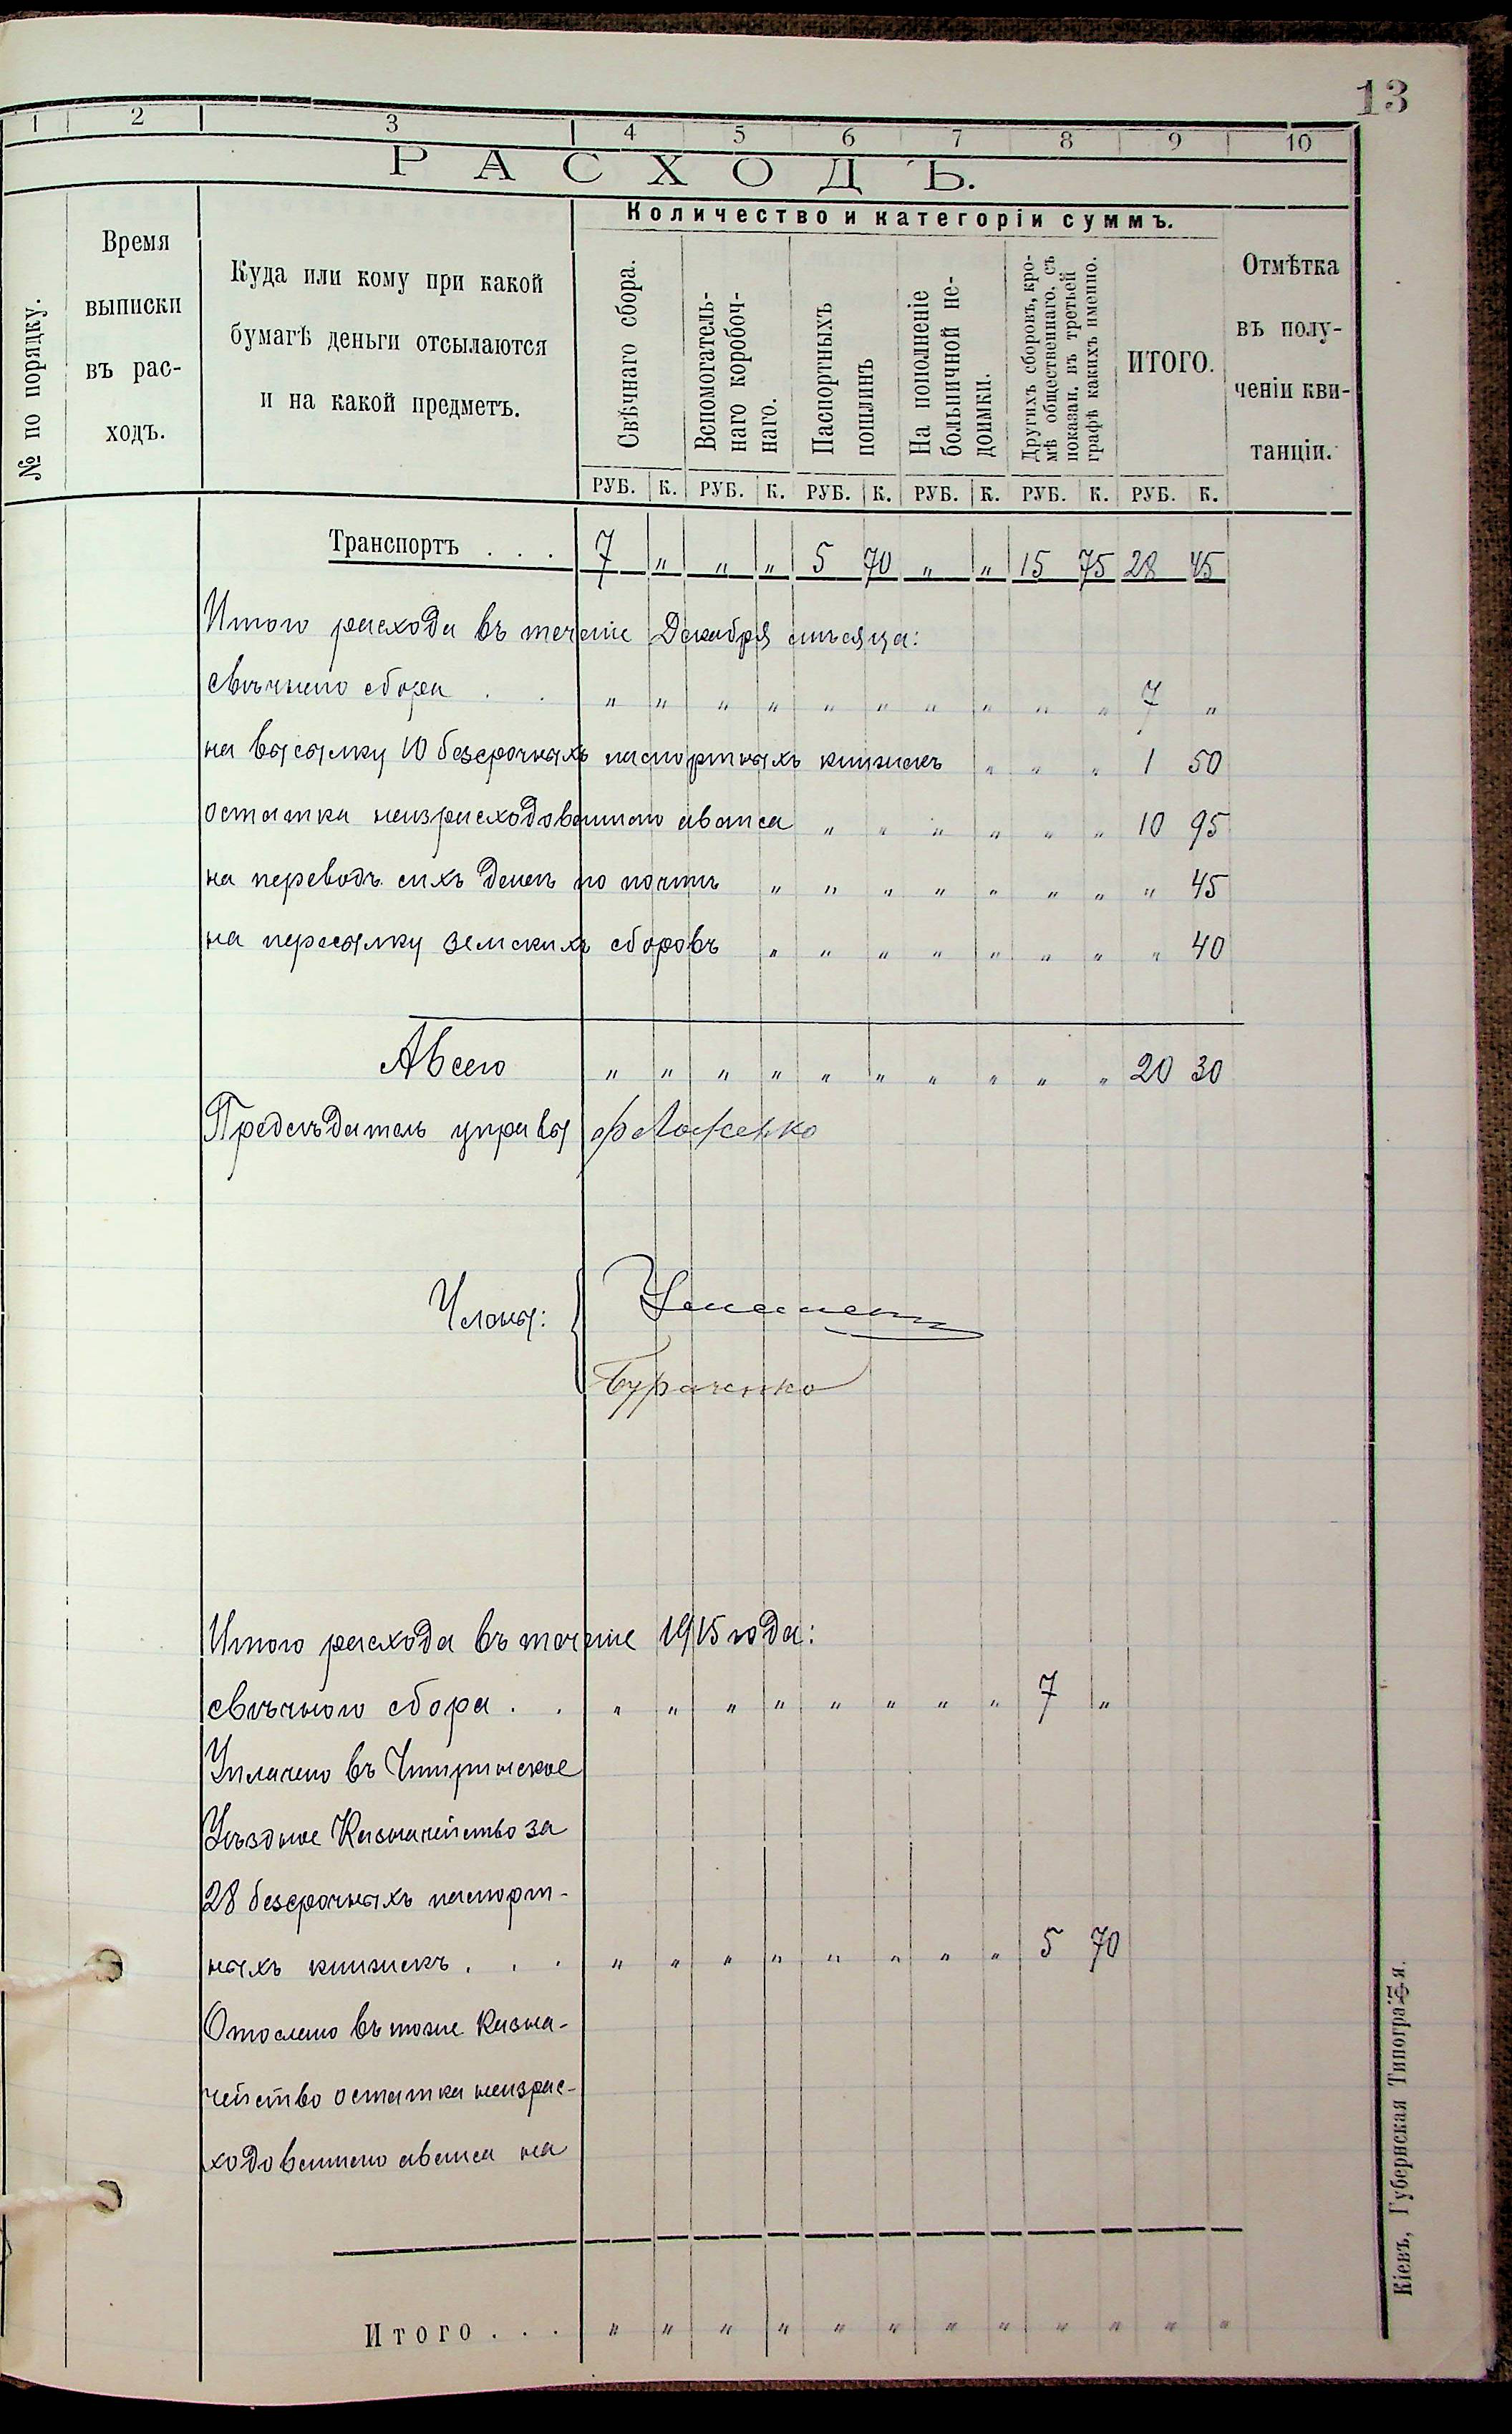 13
1 2 3 4 5 6 7 8 9 10
РАСХОДЪ.
№ по порядку.
Время
выписки
въ рас-
ходъ.
Куда или кому при какой
бумагѣ деньги отсылаются
и на какой предметъ.
Количество и категоріи суммъ.
Свѣчнаго сбора.
Вспомогатель-
наго коробоч-
наго.
Паспортныхъ
пошлинъ
На пополненіе
больничной не-
доимки.
Другихъ сборовъ, кро-
мѣ общественнаго, съ
показан. въ третьей
графѣ какихъ именно.
ИТОГО.
Отмѣтка
въ полу-
ченіи кви-
танціи.
РУБ. К. РУБ. К. РУБ. К. РУБ. К. РУБ. К. РУБ. К.
Транспортъ . . . 7 „ „ „ 5 70 „ „ 15 75 28 45
Итого расхода въ теченіе Декабря мѣсяца:
свѣчного сбора . . „ „ „ „ „ „ „ „ „ „ 7 „
на высылку 10 безсрочныхъ паспортныхъ книжекъ „ „ „ 1 50
остатка неизрасходованнаго аванса „ „ „ „ „ „ 10 95
на переводъ сихъ денегъ по почтѣ „ „ „ „ „ „ „ „ 45
на пересылку земскихъ сборовъ „ „ „ „ „ „ „ „ 40
А всего „ „ „ „ „ „ „ „ „ „ 20 30
Предсѣдатель управы
Члены:
Бураченко
Итого расхода въ теченіе 1915 года:
свѣчного сбора . . „ „ „ „ „ „ „ „ 7 „
Уплачено въ Чигиринское
Уѣздное Казначейство за
28 безсрочныхъ паспорт-
ныхъ книжекъ . . . „ „ „ „ „ „ „ „ 5 70
Отослано въ тоже Казна-
чейство остатка неизрас-
ходованнаго аванса на
Итого . . . „ „ „ „ „ „ „ „ „ „ „ „
Кіевъ, Губернская Типографія.